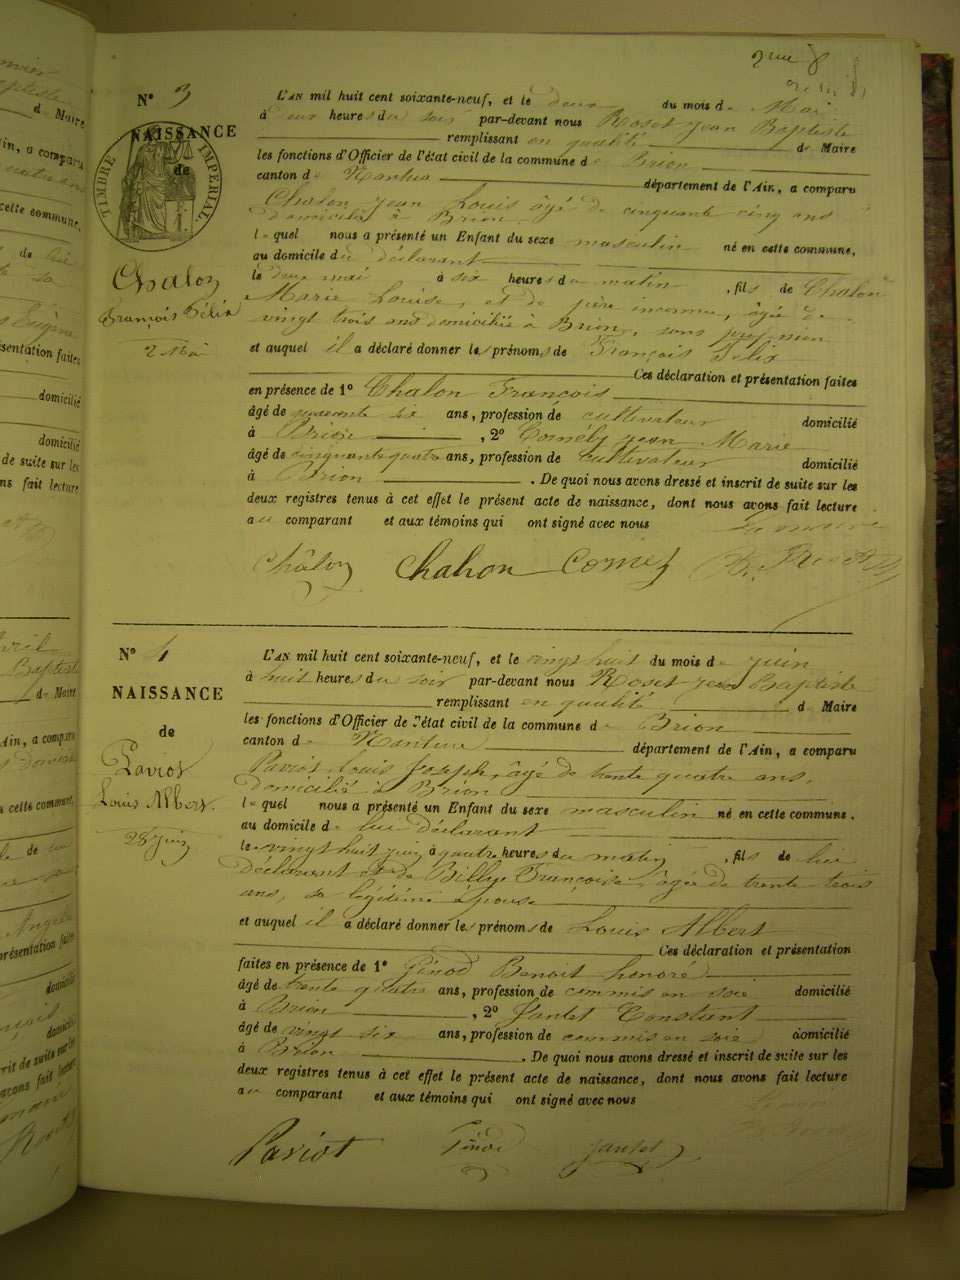 N° 3
NAISSANCE
TIMBRE IMPÉRIAL
de
Chalon
François Félix
2 Mai
L'AN mil huit cent soixante-neuf, et le deux du mois de Mai
à deux heures du soir par-devant nous Roset Jean Baptiste
remplissant en qualité de Maire
les fonctions d'Officier de l'état civil de la commune de Brion
canton de Nantua département de l'Ain, a comparu
Chalon Jean Louis âgé de cinquante cinq ans
domicilié à Brion
lequel nous a présenté un Enfant du sexe masculin né en cette commune,
au domicile du déclarant
le deux mai à six heures du matin, fils de Chalon
Marie Louise, et de père inconnu, âgée de
vingt trois ans domiciliée à Brion, sans
et auquel il a déclaré donner les prénoms de François Félix
Ces déclaration et présentation faites
en présence de 1° Chalon François
âgé de six ans, profession de cultivateur domicilié
à Brion, 2° Jean Marie
âgé de cinquante quatre ans, profession de cultivateur domicilié
à Brion. De quoi nous avons dressé et inscrit de suite sur les
deux registres tenus à cet effet le présent acte de naissance, dont nous avons fait lecture
au comparant et aux témoins qui ont signé avec nous
Châlon Chalion
N° 4
NAISSANCE
de
Paviot
Louis Albert
28 Juin
L'AN mil huit cent soixante-neuf, et le vingt huit du mois de juin
à huit heures du soir par-devant nous Roset Jean Baptiste
remplissant en qualité de Maire
les fonctions d'Officier de l'état civil de la commune de Brion
canton de Nantua département de l'Ain, a comparu
Paviot Louis Joseph, âgé de trente quatre ans,
domicilié à Brion
lequel nous a présenté un Enfant du sexe masculin né en cette commune,
au domicile de lui déclarant
le vingt huit juin à quatre heures du matin, fils de lui
déclarant et de Billye Françoise, âgée de trente trois
ans, sa légitime épouse
et auquel il a déclaré donner les prénoms de Louis Albert
Ces déclaration et présentation
faites en présence de 1° Pinod Benoit honoré
âgé de trente quatre ans, profession de commis en soie domicilié
à Brion, 2° Jantet Constant
âgé de vingt six ans, profession de commis en soie domicilié
à Brion. De quoi nous avons dressé et inscrit de suite sur les
deux registres tenus à cet effet le présent acte de naissance, dont nous avons fait lecture
au comparant et aux témoins qui ont signé avec nous
Paviot Pinod Jantet